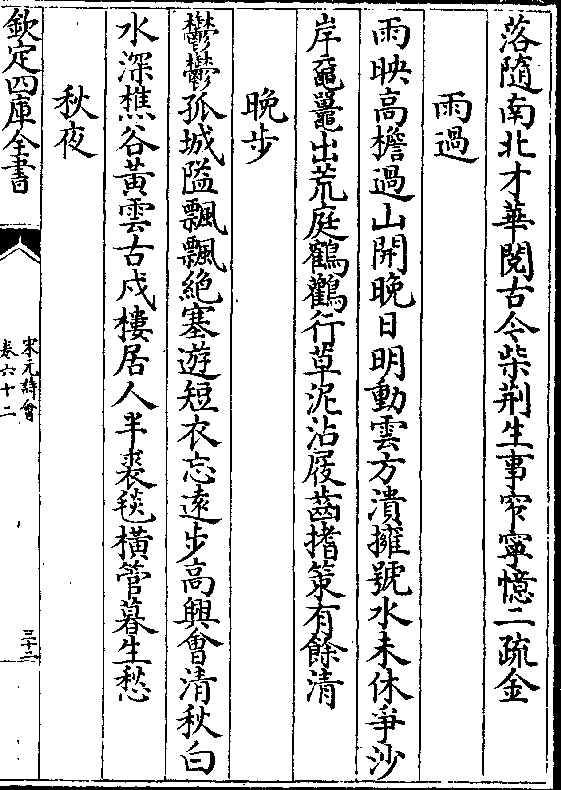 落隨南北才華閱古今柴荆生事窄寧憶二疏金
雨過
雨映高檐過山開晚日明動雲方潰擁號水未休爭沙
岸黿鼉出荒庭鶴鸛行草泥沾屐齒搘策有餘清
晚步
鬱鬱孤城隘飄飄絶塞遊短衣忘遠步高興會清秋白
水深樵谷黃雲古戍樓居人半裘毯橫管暮生愁
秋夜
欽定四庫全書
宋元詩會
卷六十二
三十三